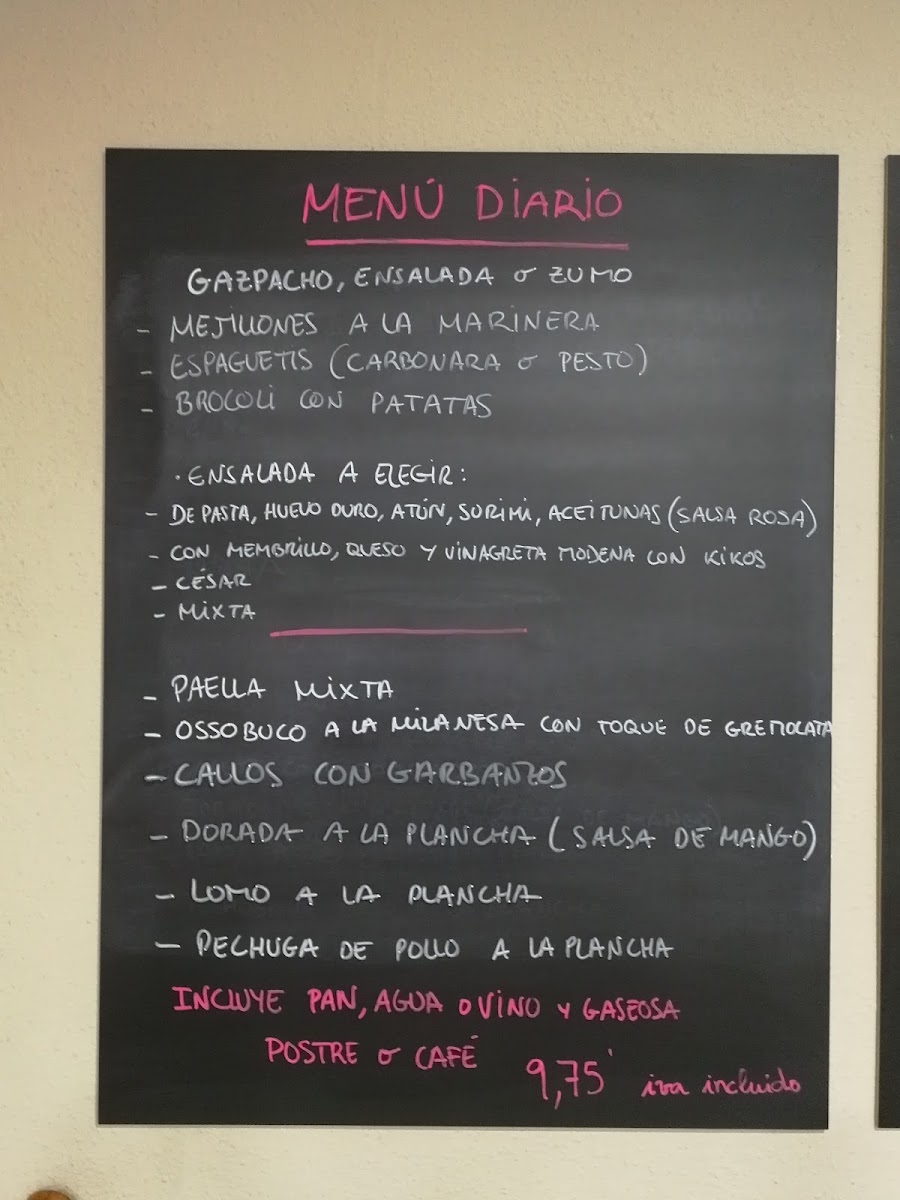 MENÚ DIARIO
GAZPACHO, ENSALADA o ZUMO
- MEJILLONES A LA MARINERA
- ESPAGUETIS (CARBONARA o PESTO)
- BROCOLI CON PATATAS
· ENSALADA A ELEGIR:
- DE PASTA, HUEVO DURO, ATÚN, SORIMI, ACEITUNAS (SALSA ROSA)
- CON MEMBRILLO, QUESO Y VINAGRETA MODENA CON KIKOS
- CÉSAR
- MIXTA
- PAELLA MIXTA
- OSSOBUCO A LA MILANESA CON TOQUE DE GREMOLATA
- CALLOS CON GARBANZOS
- DORADA A LA PLANCHA (SALSA DE MANGO)
- LOMO A LA PLANCHA
- PECHUGA DE POLLO A LA PLANCHA
INCLUYE PAN, AGUA O VINO Y GASEOSA
POSTRE o CAFÉ
9,75' iva incluido